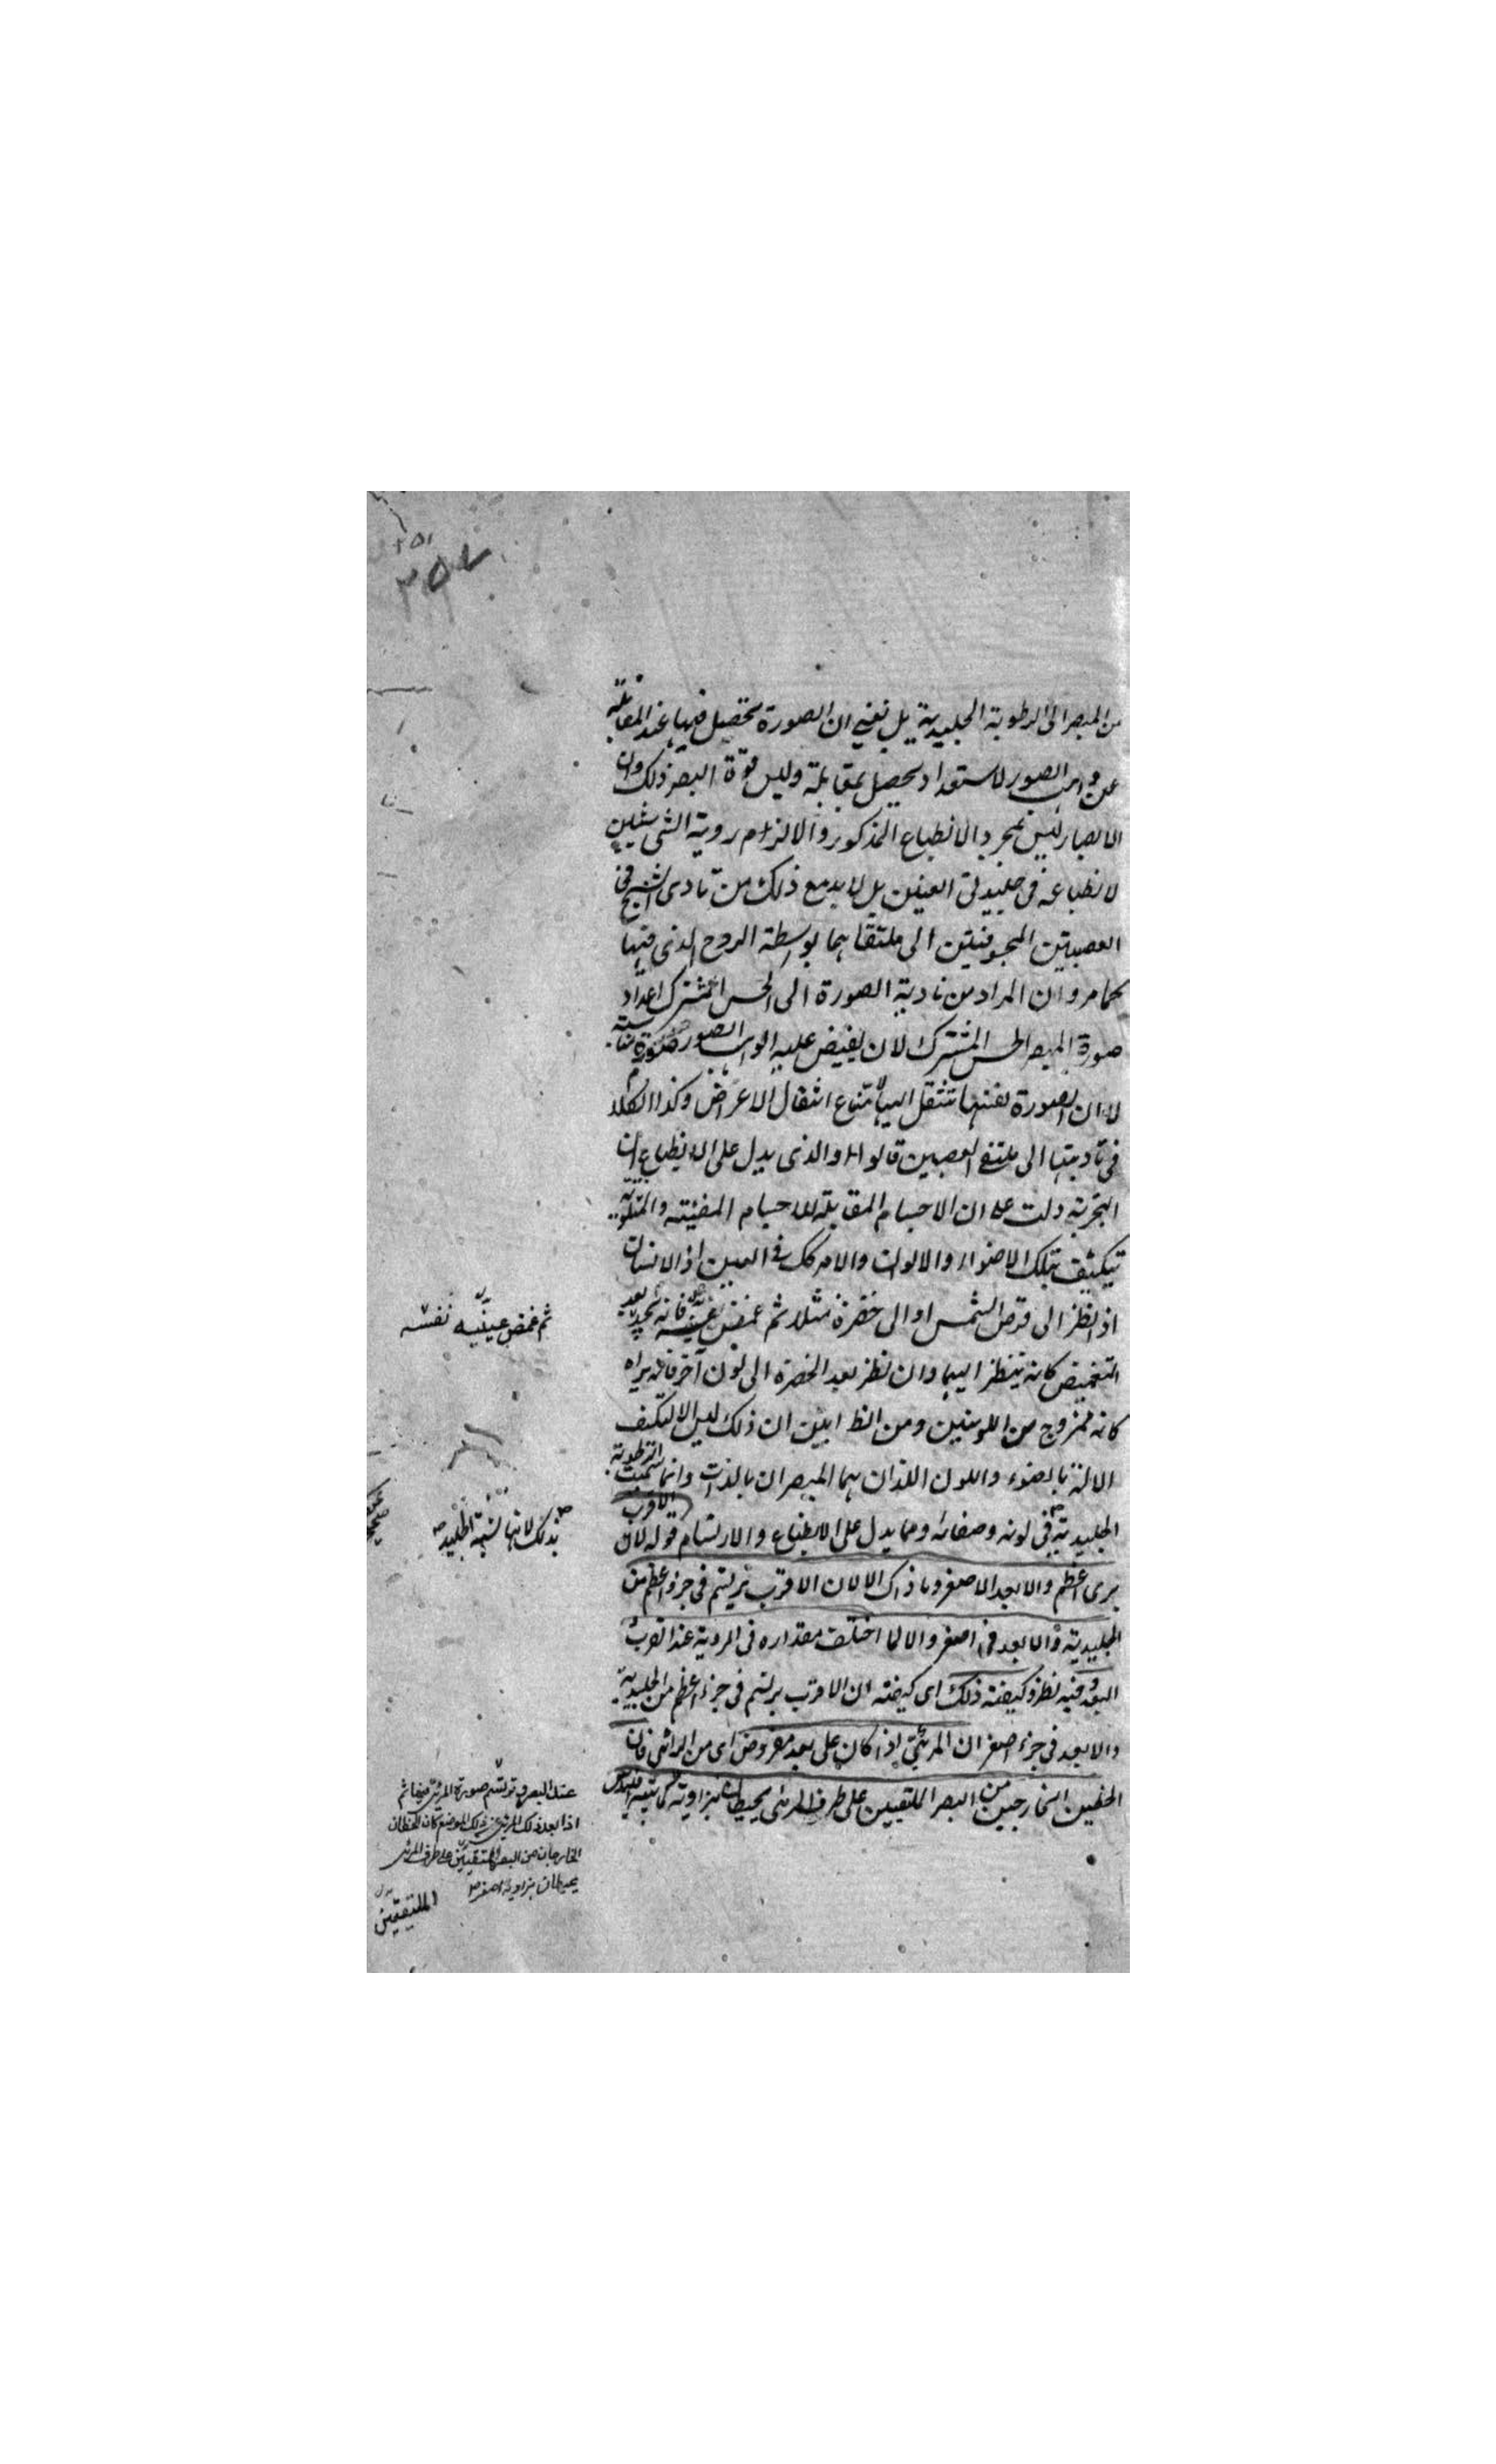 ٢٥١
٣٥٧
من المبصر الى الرطوبة الجليدية بل نعنى ان الصورة تحصل فيها عند المقابلة
عن واهب الصور لاستعداد يحصل بمقابلة وليس قوة البصر ذلك وان
الابصار ليس بمجرد الانطباع المذكور والا لزم روية الشى شيئين
لانطباعه فى جليدتى العينين بل لا بد مع ذلك من تادى الشبح فى
العصبتين المجوفتين الى ملتقاهما بواسطة الروح الذى فيها
كما مر وان المراد من تادية الصورة الى الحس المشترك اعداد
صورة المبصر الحس المشترك لان يفيض عليه من واهب الصور صورة
لا ان الصورة نفسها تنتقل اليه لامتناع انتقال الاعراض وكذا الكلام
فى تاديتها الى ملتقى العصبين قالوا والذى يدل على الانطباع ان
التجربة دلت على ان الاجسام المقابلة للاجسام المضيئة والمتلونة
تتكيف بتلك الاضواء والالوان والامر كك فى العين اذ الانسان
اذا نظر الى قرص الشمس او الى خضرة مثلا ثم غمض عينيه فانه يجد بعد
التغميض كانه ينظر اليها وان نظر بعد الخضرة الى لون آخر فانه يراه
كانه ممزوج من اللونين ومن البين ان ذلك ليس الا لتكيف
الالة بالضوء واللون اللذان هما المبصران بالذات وانما سميت الرطوبة
الجليدية فى لونه وصفائه ومما يدل على الانطباع والارتسام قوله لان الاقرب
يرى اعظم والابعد الاصغر وما ذاك الا لان الاقرب يرتسم فى جزء اعظم من
الجليدية والابعد فى اصغر والا لما اختلف مقداره فى الروية عند القرب
البعد وفيه نظر وكيفية ذلك اى كيفية ان الاقرب يرتسم فى جزء اعظم من الجليدية
والابعد فى جزء اصغر ان المرئى اذا كان على بعد مفروض اى من الرائى فان
الخطين الخارجين من البصر الملتقيين على طرف المرئى يحيطان بزاوية
ثم غمض عينيه نفسه
بذلك لانها تشبه الجليد
عند البصر وترتسم صورة المرئى فيها ثم
اذا بعد ذلك المرئى عن ذلك الموضع كان الخطان
الخارجان من البصر الملتقيين على طرف المرئى
يحيطان بزاوية اصغر
الملتقيين